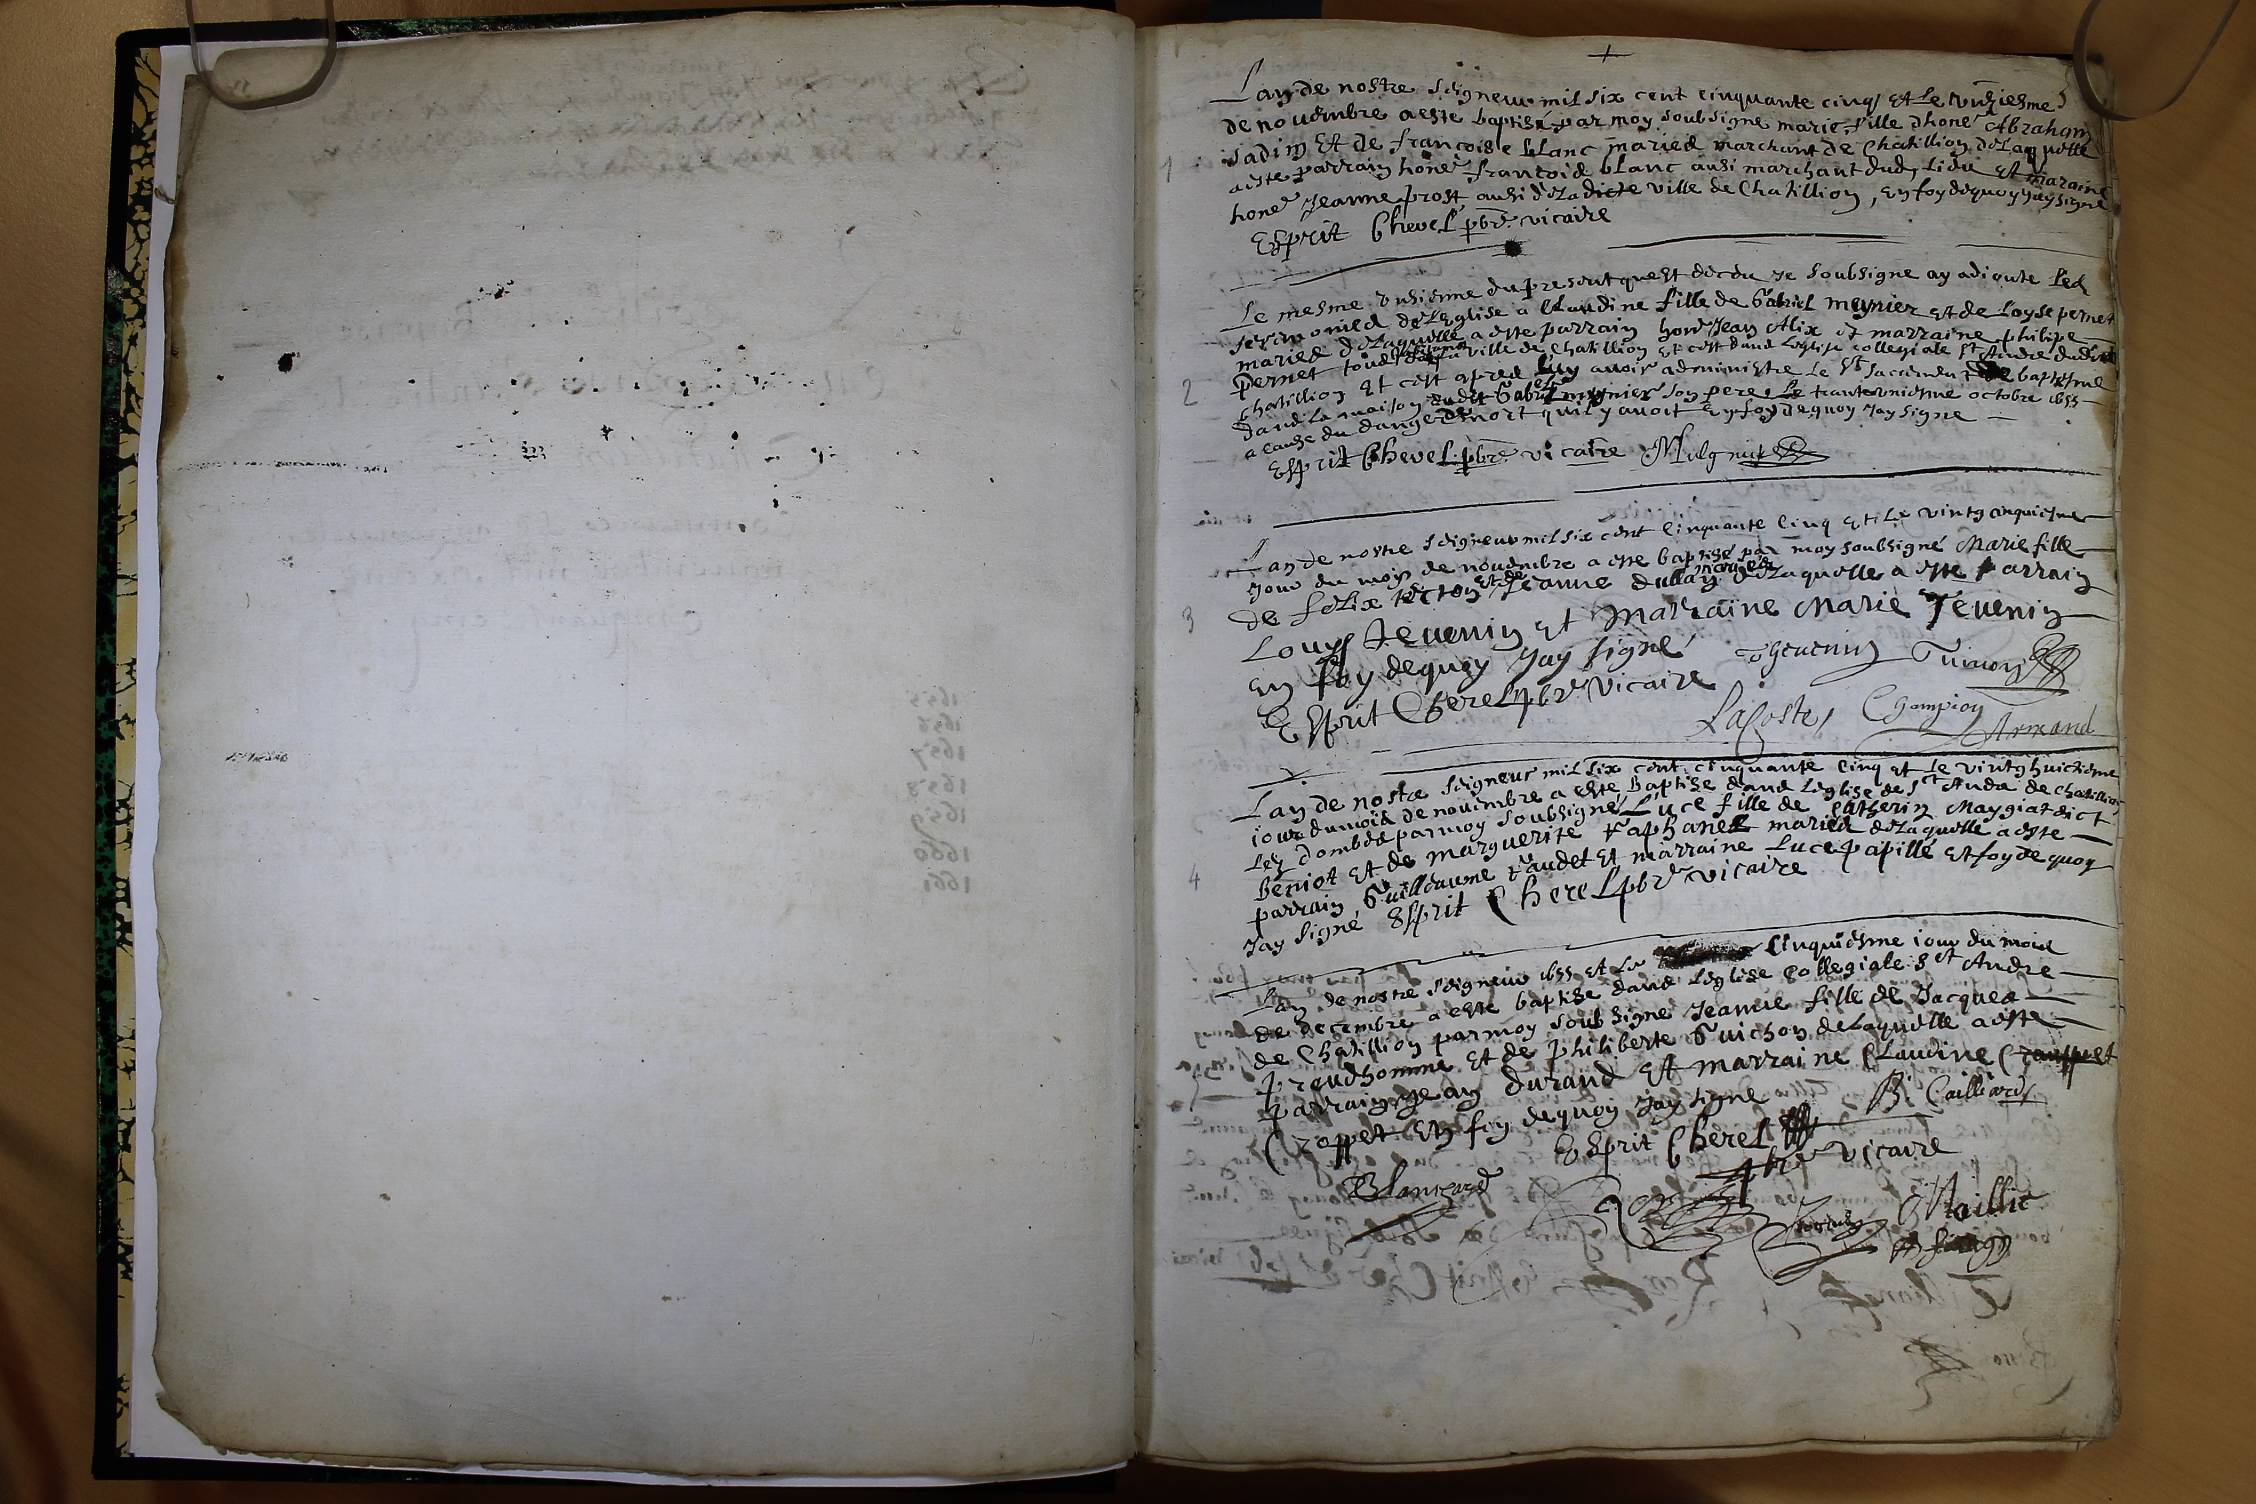 +
Lan de nostre Seigneur mil six cent cinquante cinq et le unziesme
de novembre a este baptisé par moy soubsigne marie fille dhone Abraham
Jadin et de francoise blanc mariés marchant de Chatillion de laquelle
a este parrain hone francois blanc ausi marchant dud lieu et maraine
hone Jeanne prost ausi de la dicte ville de Chatillion, en foy de quoy jay signe
Esprit Cherel pbre vicaire
1
Le mesme unsiesme du present que est decdu Je soubsigne ay adioute les
seremonies de leglise a Claudine fille de Gabriel meynier et de Loyse pernet
maries de laquelle a este parrain hone Jean Alix et marraine philipe
pernet tous de la ville de Chatillion et cest dans leglise collegiale st Andre dudict
chatillion et cest apres luy avoir administre le st sacrement de baptesme
dans la maison dudit Gabriel meynier son pere le trante uniesme octobre 1655
a cause du danger de mort quil y avoit en foy de quoy jay signe
Esprit Cherel pbre vicaire
2
Lan de nostre Seigneur mil six cent cinquante cinq et le vintg cinquiesme
jour du mois de novembre a este baptisé par moy soubsigné Marie fille
de felix et de Jeanne mariés de laquelle a este parrain
Louys Tevenin et marraine Marie Tevenin
en foy de quoy Jay signé Thevenin
Esprit Cherel pbre vicaire
Lacoste Champion
Armand
3
Lan de nostre Seigneur mil six cent cinquante cinq et le vintg huictiesme
iour du mois de novembre a este baptise dans leglise de st Andre de chatillion
les dombes par moy soubsigné Luce fille de Catherin Maygiat dict
Beniot et de marguerite raphanel mariés de laquelle a este
parrain Guillaume et marraine Luce papillé et foy de quoy
Jay signé Esprit Cherel pbre vicaire
4
Lan de nostre Seigneur 1655 et le cinquiesme iour du mois
de decembre a este baptise dans leglise Collegiale st Andre
de Chatillion par moy soubsigne Jeanne fille de Jacques
proudhomme et de philiberte Guichon de laquelle a este
parrain Jean durand et marraine Claudine
Croppet en foy de quoy Jay signe B. Cailliard
Esprit Cherel
pbre vicaire
Blanchard
1655
1656
1657
1658
1659
1660
1661